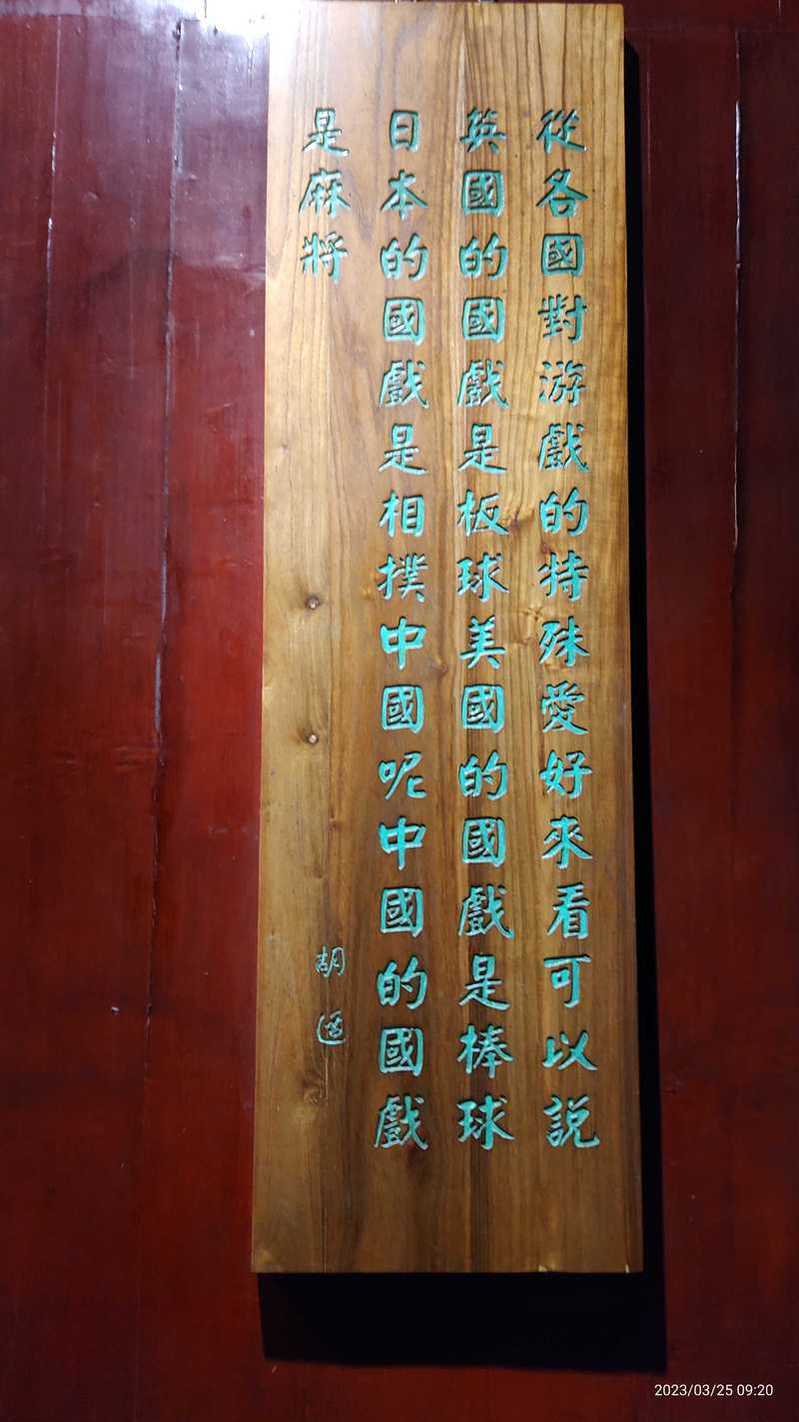 從各國對游戲的特殊愛好來看可以説
英國的國戲是板球美國的國戲是棒球
日本的國戲是相撲中國呢中國的國戲
是麻將
胡适
2023/03/25 09:20